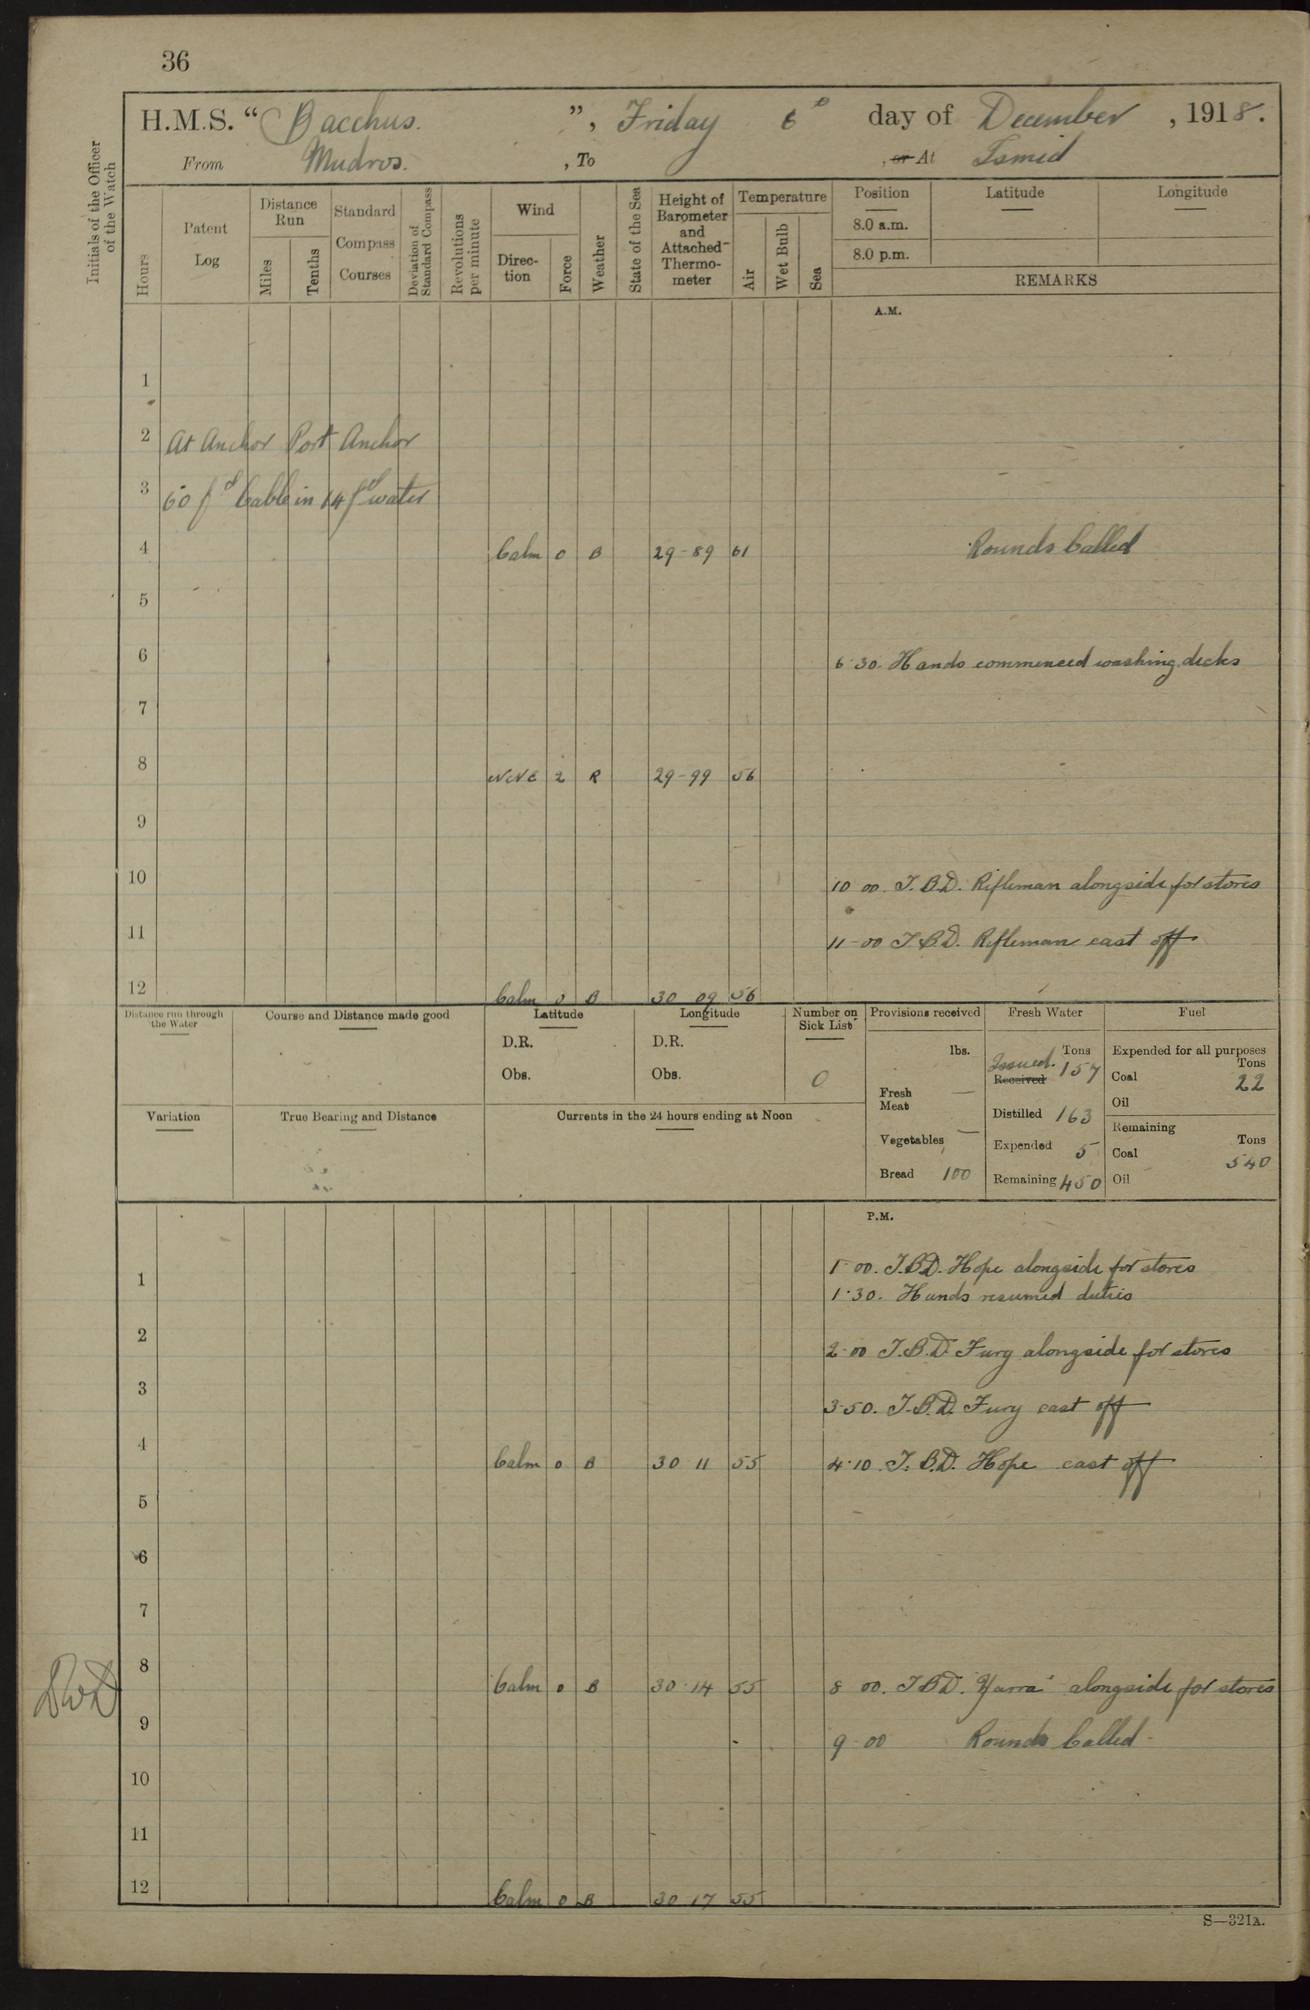 36
H.M.S. “Bacchus.”, Friday 6th day of December, 1918.
From Mudros. , To , or At Ismid
Initials of the Officer of the Watch
Hours
Patent Log
Distance Run
Miles
Tenths
Standard Compass Courses
Deviation of Standard Compass
Revolutions per minute
Wind
Direc-tion
Force
Weather
State of the Sea
Height of Barometer and Attached Thermo-meter
Temperature
Air
Wet Bulb
Sea
Position Latitude Longitude
8.0 a.m.
8.0 p.m.
REMARKS
A.M.
1
2 At Anchor Port Anchor
3 60 fms Cable in 14 fms water
4 Calm 0 B 29-89 61 Rounds Called
5
6 6·30. Hands commenced washing decks
7
8 NNE 2 R 29-99 56
9
10 10 00. T.B.D. Rifleman alongside for stores
11 11-00 T.B.D. Rifleman cast off
12 Calm 0 B 30 09 56
Distance run through the Water
Course and Distance made good
Latitude
D.R.
Obs.
Longitude
D.R.
Obs.
Number on Sick List
0
Variation
True Bearing and Distance
Currents in the 24 hours ending at Noon
Provisions received
lbs.
Fresh Meat —
Vegetables —
Bread 100
Fresh Water
Tons
Issued.
Received 157
Distilled 163
Expended 5
Remaining 450
Fuel
Expended for all purposes
Tons
Coal 22
Oil
Remaining
Tons
Coal 540
Oil
P.M.
1·00. T.B.D. Hope alongside for stores
1 1·30. Hands resumed duties
2 2·00 T.B.D. Fury alongside for stores
3 3·50. T.B.D. Fury cast off
4 Calm 0 B 30 11 55 4·10. T.B.D. Hope cast off
5
6
7
8 Calm 0 B 30·14 55 8 00. T.B.D. "Yarra" alongside for stores
9 9-00 Rounds Called
10
11
12 Calm 0 B 30 17 55
S—321A.